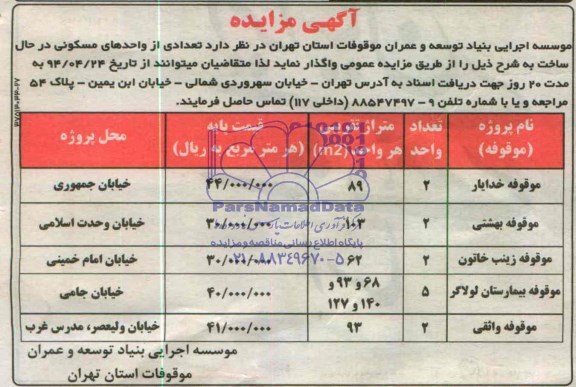 آگهی مزایده
موسسه اجرایی بنیاد توسعه و عمران موقوفات استان تهران در نظر دارد تعدادی از واحدهای مسکونی در حال
ساخت به شرح ذیل را از طریق مزایده عمومی واگذار نماید لذا متقاضیان میتوانند از تاریخ ۹۴/۰۴/۲۴ به
مدت ۲۰ روز جهت دریافت اسناد به آدرس تهران - خیابان سهروردی شمالی - خیابان ابن یمین - پلاک ۵۴
مراجعه و یا با شماره تلفن ۹ - ۸۸۵۴۷۴۹۷ (داخلی ۱۱۷) تماس حاصل فرمایند.
نام پروژه (موقوفه) تعداد واحد متراژ تقریبی هر واحد (m2) قیمت پایه (هر متر مربع به ریال) محل پروژه
موقوفه خدایار ۲ ۸۹ ۴۴/۰۰۰/۰۰۰ خیابان جمهوری
موقوفه بهشتی ۲ ۱۰۳ ۳۰/۰۰۰/۰۰۰ خیابان وحدت اسلامی
موقوفه زینب خاتون ۲ ۶۲ ۳۰/۰۰۰/۰۰۰ خیابان امام خمینی
موقوفه بیمارستان لولاگر ۵ ۶۸ و ۹۳ و ۱۴۰ و ۱۲۷ ۴۰/۰۰۰/۰۰۰ خیابان جامی
موقوفه واثقی ۲ ۹۳ ۴۱/۰۰۰/۰۰۰ خیابان ولیعصر، مدرس غرب
موسسه اجرایی بنیاد توسعه و عمران
موقوفات استان تهران
ParsNamadData
پایگاه اطلاع رسانی مناقصه و مزایده
۰۲۱-۸۸۳۴۹۶۷۰-۵